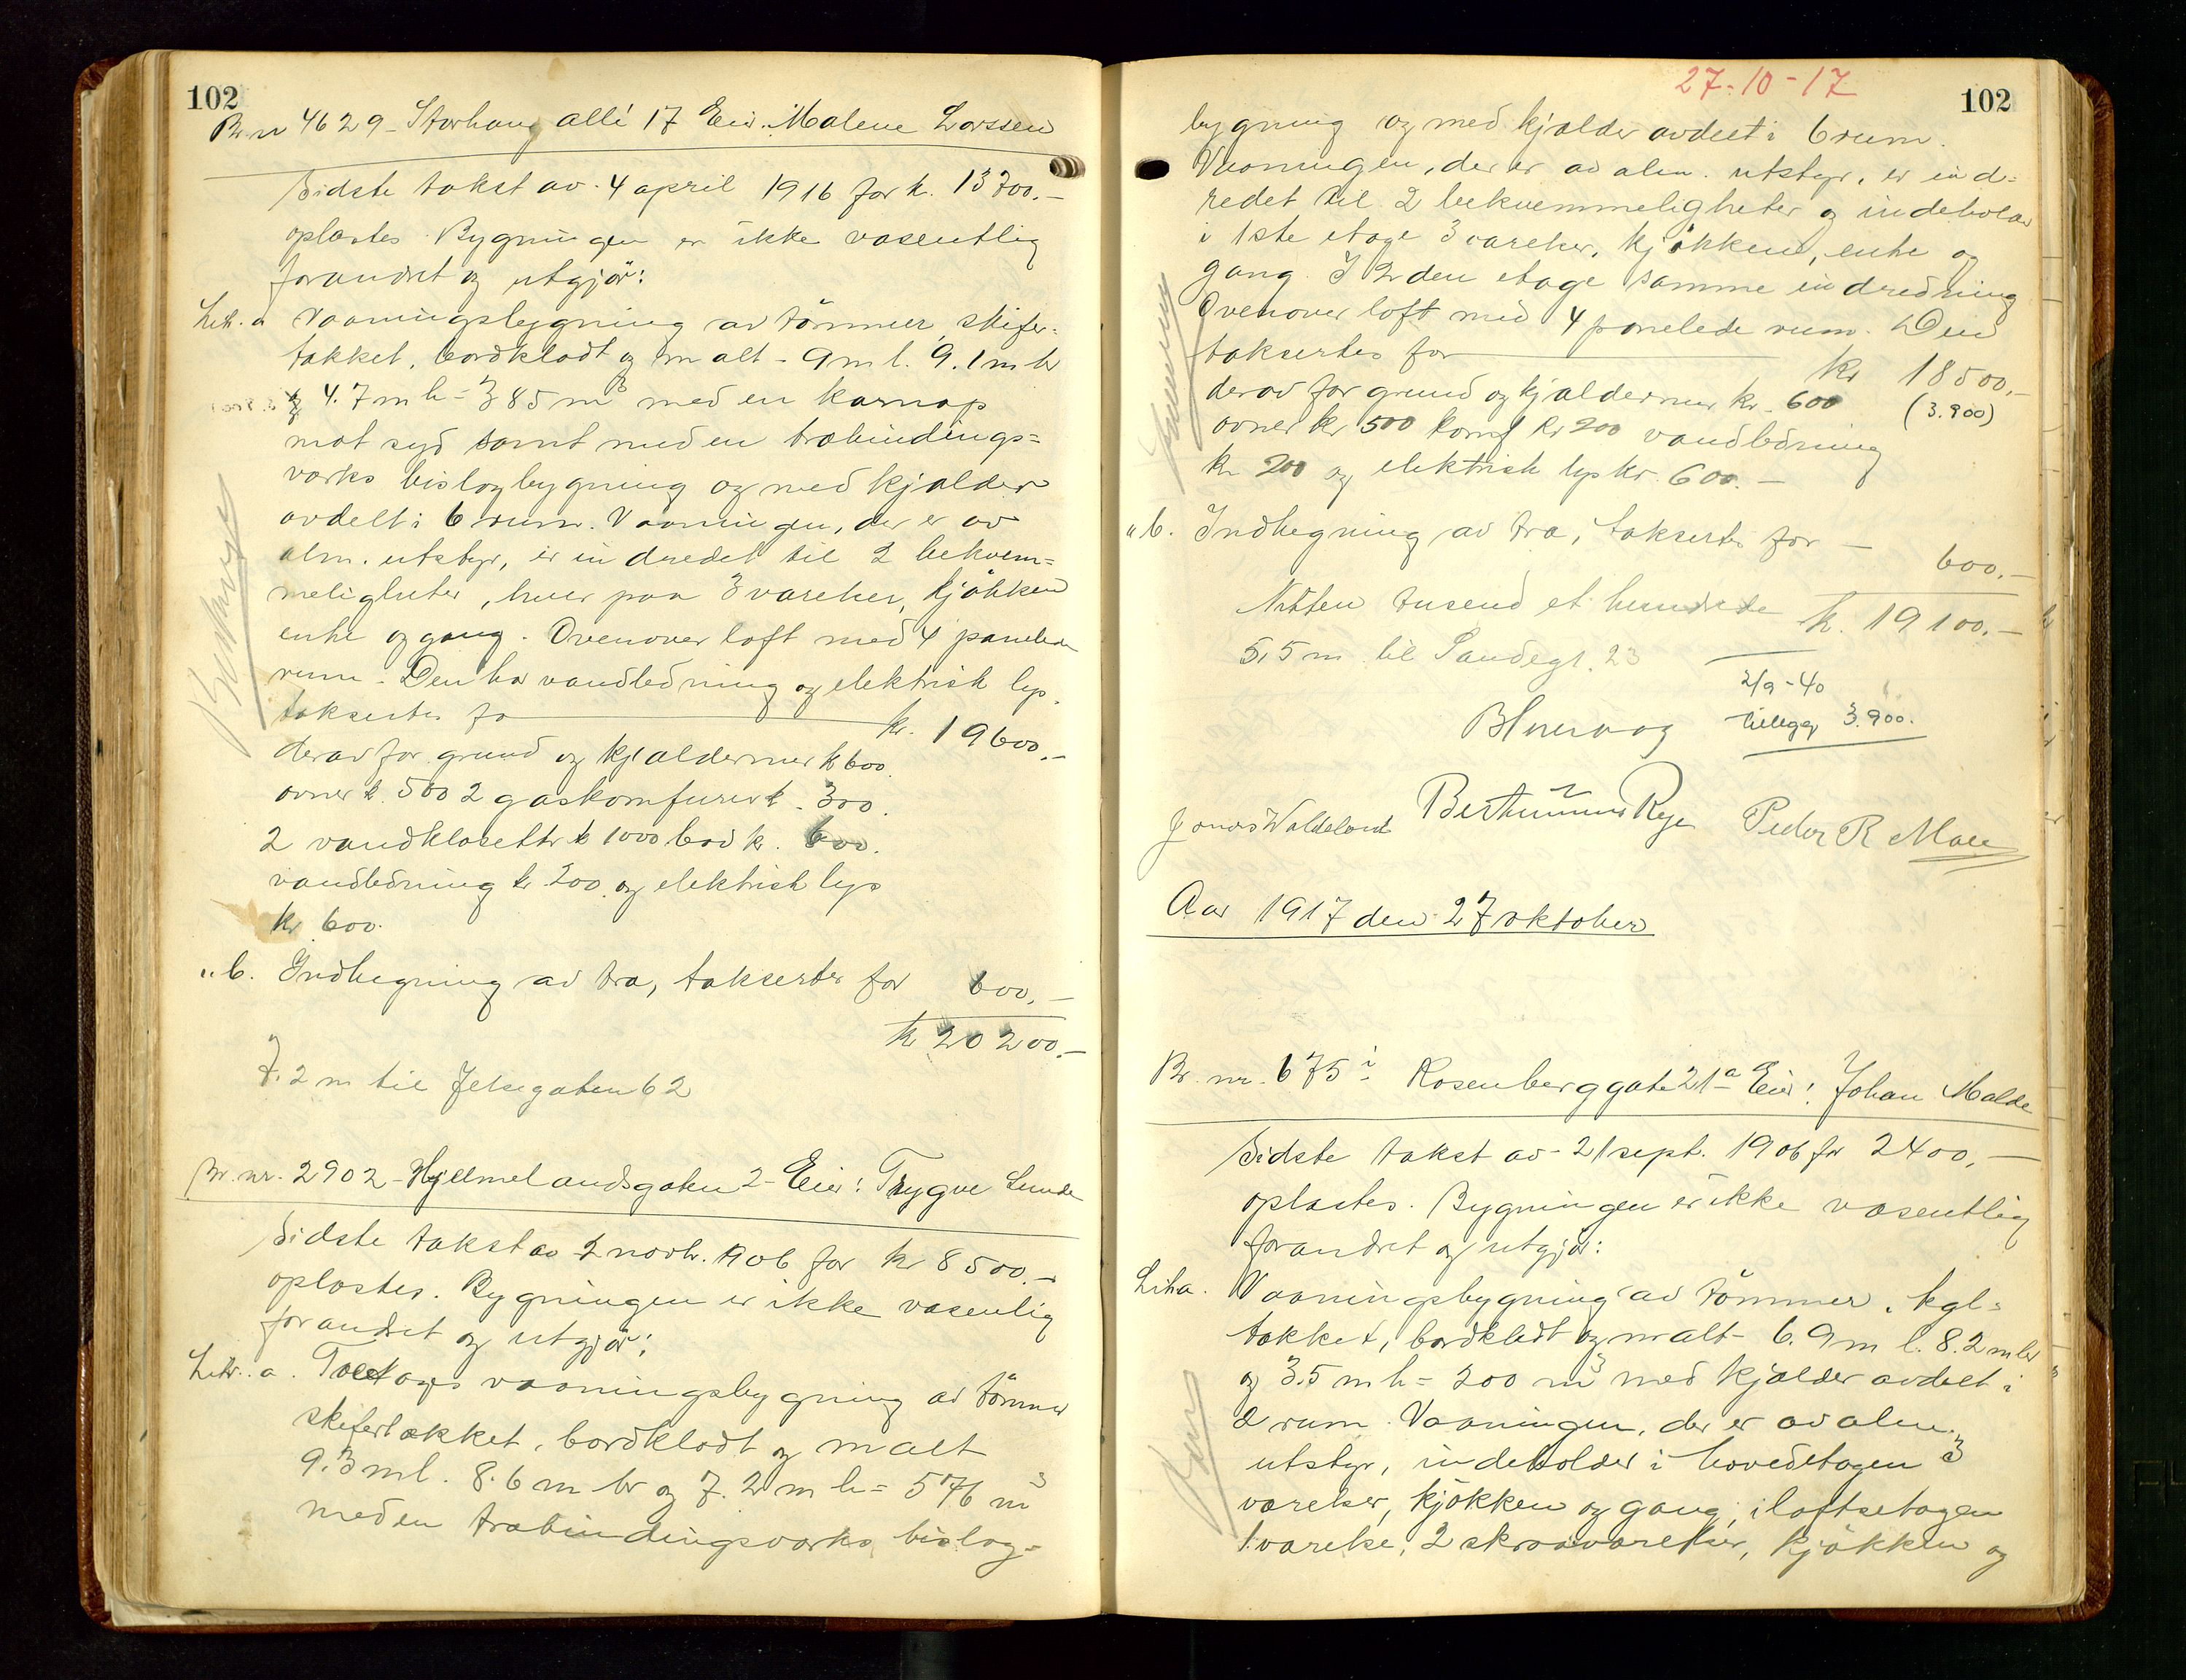 102
Br. nr 4629 - Storhaug allé 17 Eier: Malene Larssen
Sidste takst av 4 april 1916 for kr. 13700.-
oplæstes. Bygningen er ikke væsentlig
forandret og utgjør:
Litr. a Vaaningsbygning av tømmer, skifer-
tækket, bordklædt og malt - 9 m l. 9.1 m br
og 4.7 m h = 385 m³ med en karnap
mot syd samt med en træbindings-
verks bislagbygning og med kjælder
avdelt i 6 rum. Vaaningen, der er av
alm. utstyr, er indredet til 2 bekvem-
meligheter, hver paa 3 værelser, kjøkken
entre og gang. Ovenover loft med 4 panelede
rum. Den har vandledning og elektrisk lys.
takseres for kr. 19600.-
derav for grund og kjældermur kr 600.
ovner kr. 500 2 gaskomfurer kr. 300.
2 vandklosetter kr 1000 bad kr. 600.
vandledning kr 200 og elektrisk lys
kr 600.
" b. Indhegning av træ, takseres for 600.-
kr 20200.-
7.2 m til Jelsegaten 62
Br. nr. 2902 - Hjelmelandsgaten 2 - Eier: Trygve Lunde
Sidste takst av 2 novbr. 1906 for kr 8500.-
oplæstes. Bygningen er ikke væsenlig
forandret og utgjør:
Litr. a. Toetages vaaningsbygning av tømmer
skifertækket, bordklædt og malt
9.3 m l. 8.6 m br og 7.2 m h = 576 m³
med en træbindingsverks bislag-
27-10-17
102
bygning og med kjælder avdelt i 6 rum.
Vaaningen, der er av alm. utstyr, er ind-
redet til 2 bekvemmeligheter og indeholder
i 1ste etage 3 værelser, kjøkken, entre og
gang. I 2den etage samme indredning
Ovenover loft med 4 panelede rum. Den
takseres for kr 18500.-
derav for grund og kjældermur kr. 600 (3.900)
ovner kr 500 komf kr 200 vandledning
kr 200 og elektrisk lys kr. 600.-
" b. Indhegning av træ, takseres for - 600.-
Nitten tusend et hundrede kr. 19100.-
5,5 m til Sandegt. 23
2/9-40
tillegg 3.900.
Jonas Waldeland Berthinius Rege Peder R Male
Aar 1917 den 27 oktober
Br. nr. 675 i Rosenberggate 21a Eier: Johan Malde
Sidste takst av 21 sept. 1906 for 2400.-
oplæstes. Bygningen er ikke væsentlig
forandret og utgjør:
Litr a. Vaaningsbygning av tømmer, tegl-
tækket, bordklædt og malt - 6.9 m l. 8.2 m br
og 3.5 m h = 200 m³ med kjælder avdelt i
2 rum. Vaaningen, der er av alm.
utstyr, indeholder i hovedetagen 3
værelser, kjøkken og gang, i loftsetagen
1 værelse, 2 skraaværelser, kjøkken og